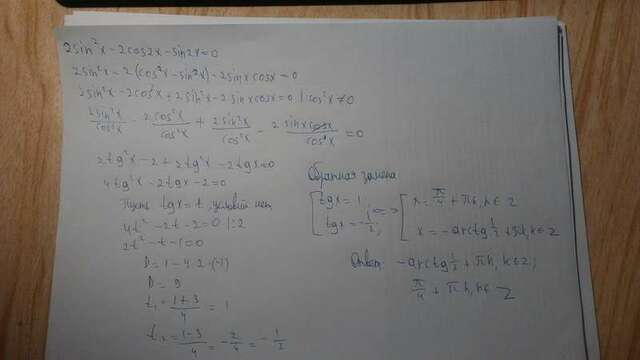 2sin²x - 2cos2x - sin2x = 0
2sin²x - 2(cos²x - sin²x) - 2sinx cosx = 0
2sin²x - 2cos²x + 2sin²x - 2sinx cosx = 0 | : cos²x ≠ 0
2sin²x/cos²x - 2cos²x/cos²x + 2sin²x/cos²x - 2sinx cosx/cos²x = 0
2tg²x - 2 + 2tg²x - 2tgx = 0
4tg²x - 2tgx - 2 = 0
Пусть tgx = t, условий нет
4t² - 2t - 2 = 0 |:2
2t² - t - 1 = 0
D = 1 - 4·2·(-1)
D = 9
t₁ = 1+3/4 = 1
t₂ = 1-3/4 = -2/4 = -1/2
Обратная замена
[tgx = 1, <=> [x = π/4 + πk, k∈Z
tgx = -1/2; x = -arctg 1/2 + πk, k∈Z
Ответ -arctg 1/2 + πk, k∈Z;
π/4 + πk, k∈Z